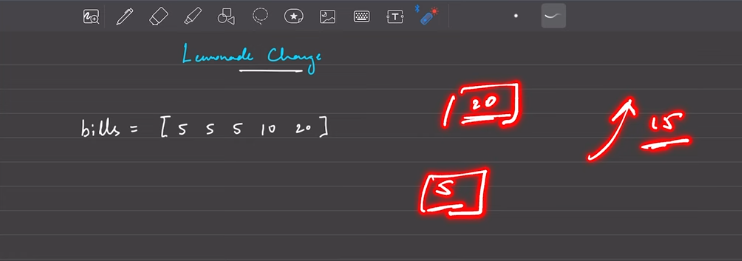 Lemonade Change
bills = [ 5 5 5 10 20 ]
20
15
5